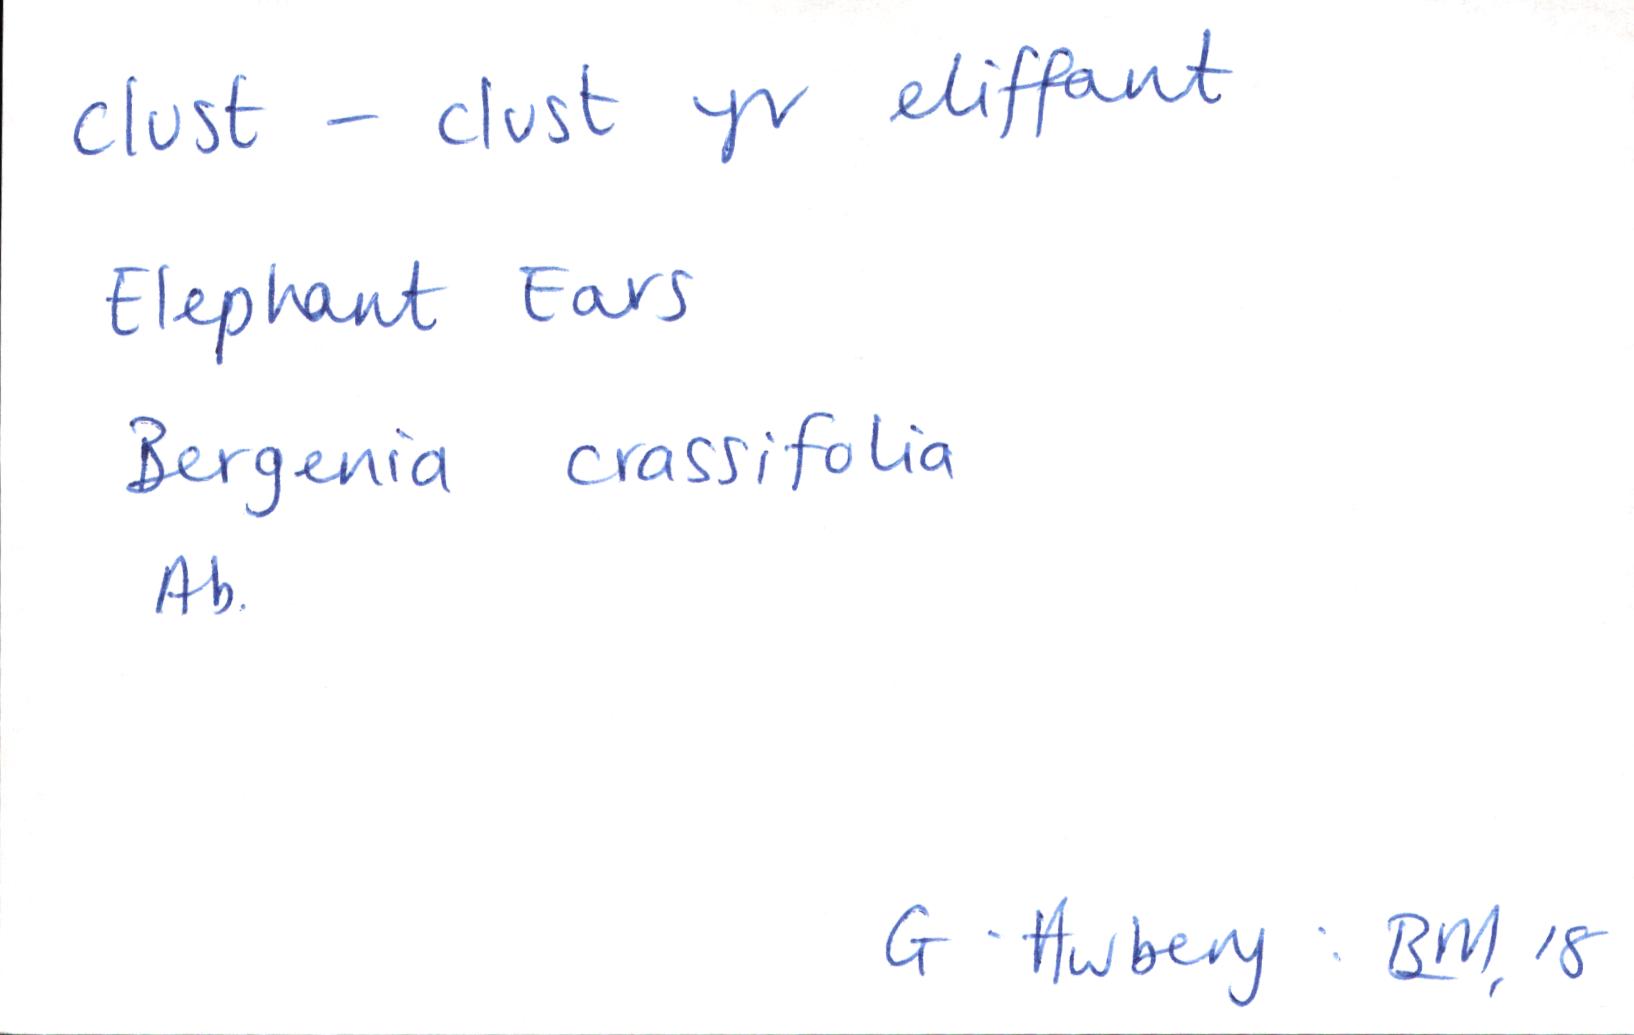 clust - clust yr eliffant
Elephant Ears
Bergenia crassifolia
Ab.
G. Awbery : BM, 18